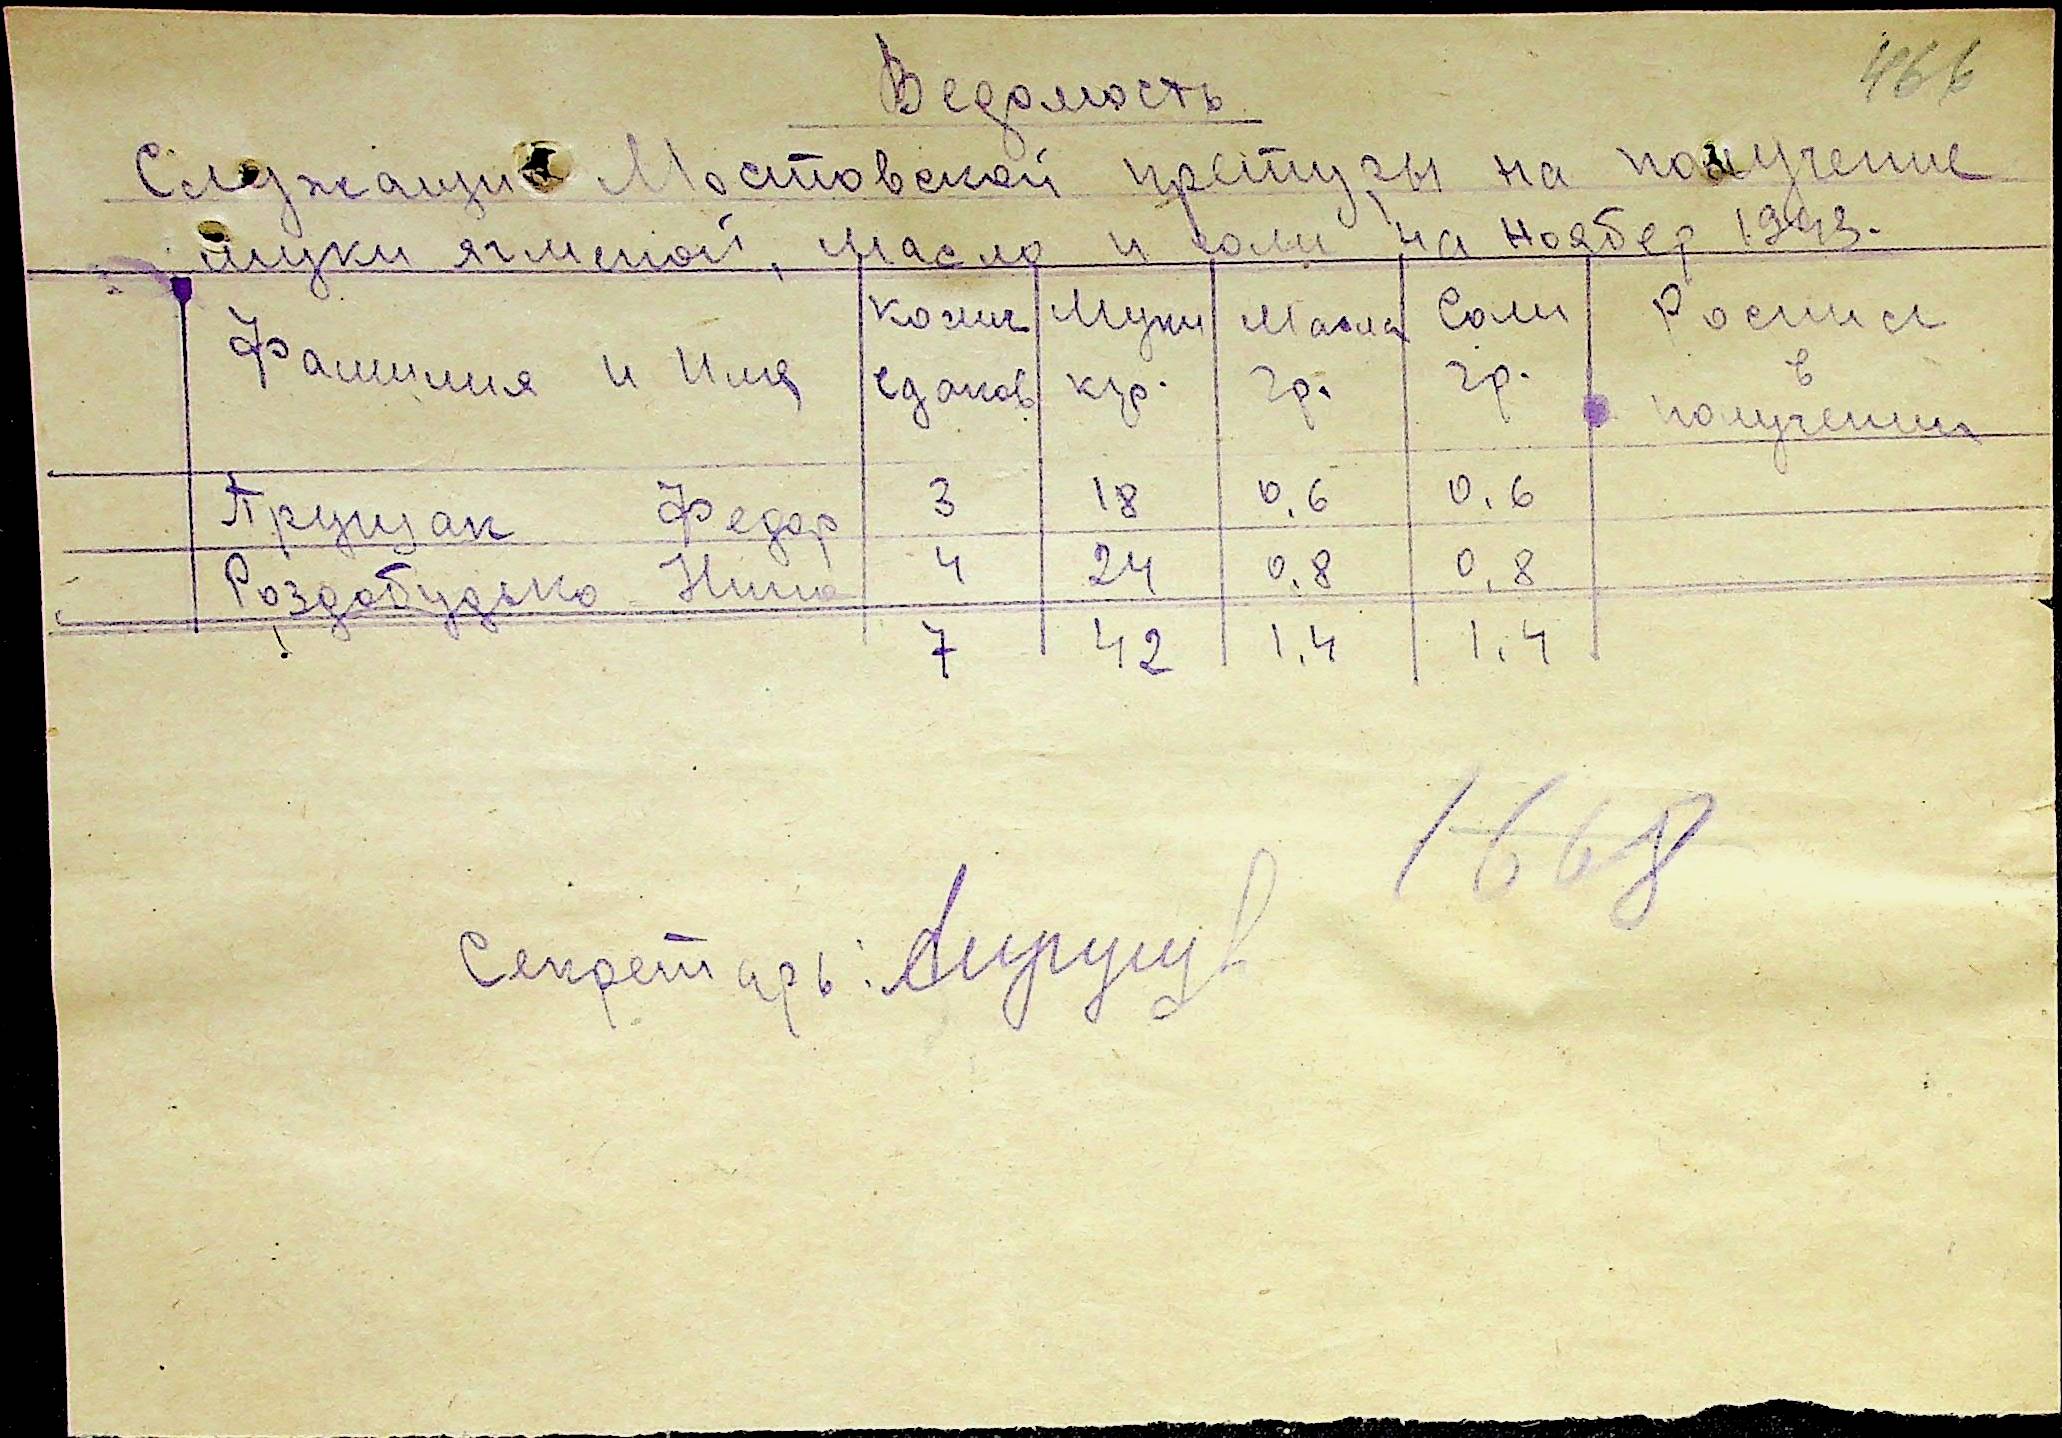 466
Ведомость
Служащих Мостовской претуры на получение
муки ячменой, масло и соли на Ноябер 1943.
Фамилия и Имя | Колич едаков | Муки кгр. | Масла гр. | Соли гр. | Росписи в получении
Прущак Федор 3 18 0,6 0,6
Роздобудько Нина 4 24 0,8 0,8
7 42 1,4 1,4
1668
Секретарь: